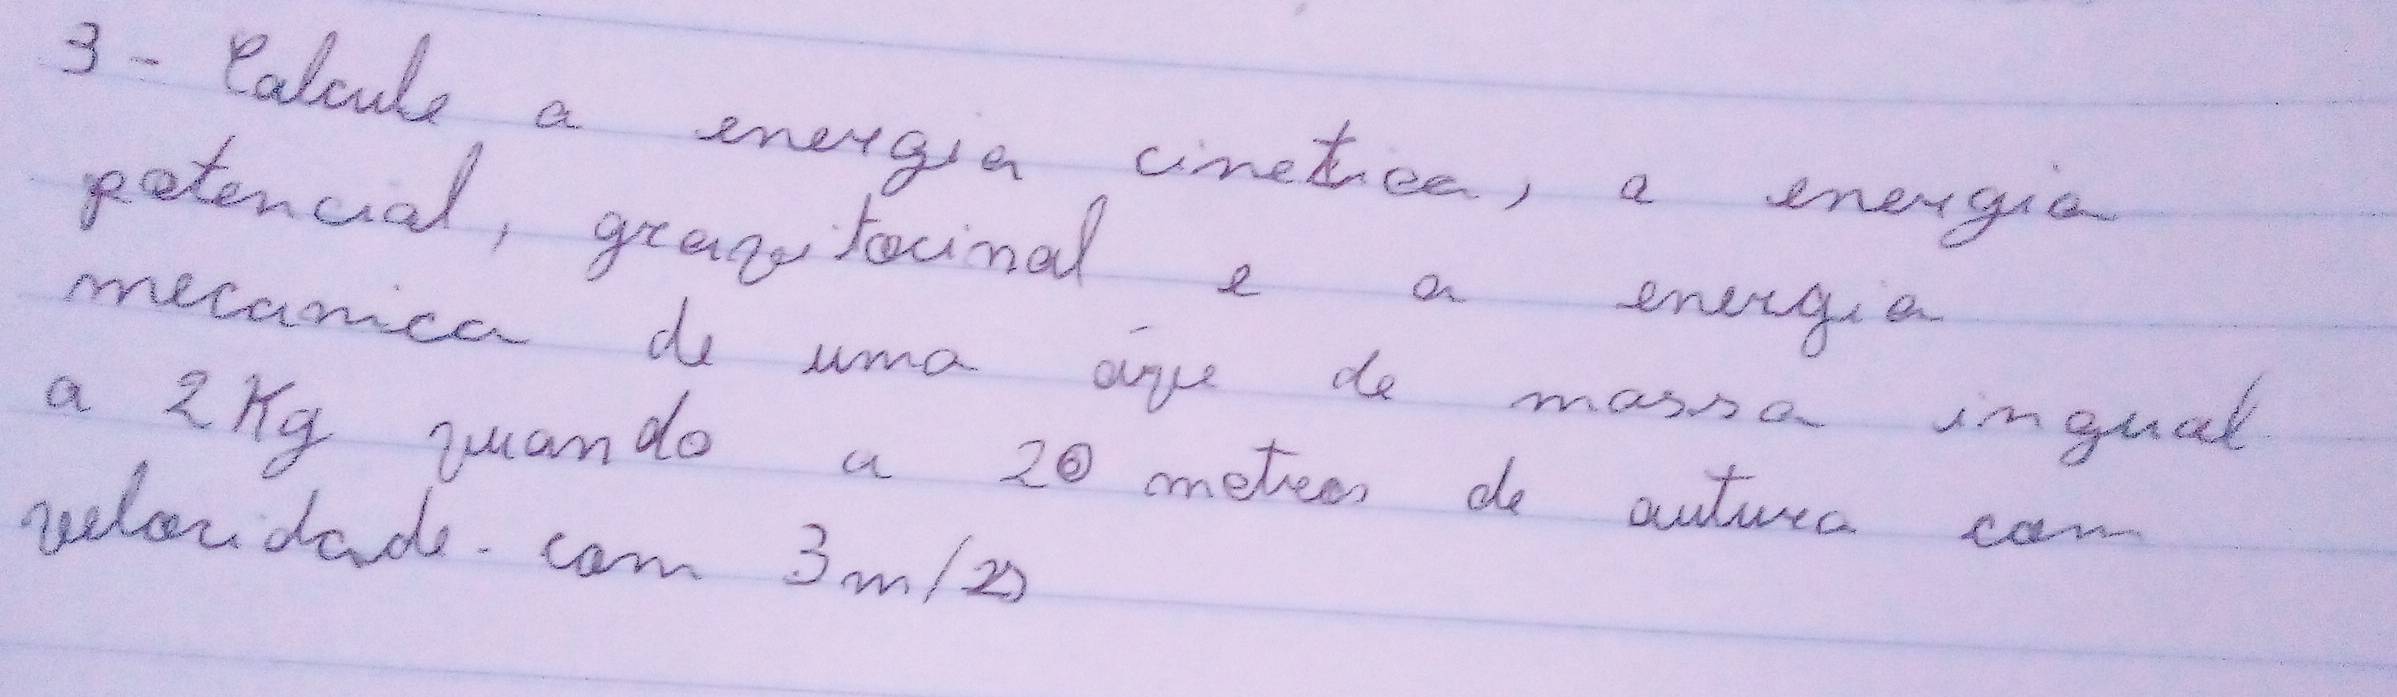 3 - Calcule a energia cinetica, a energia
potencial, gravitocinal e a energia
mecanica de uma áve de massa ingual
a 2 Kg quando a 20 metros de autura com
velocidade. com 3 m/s